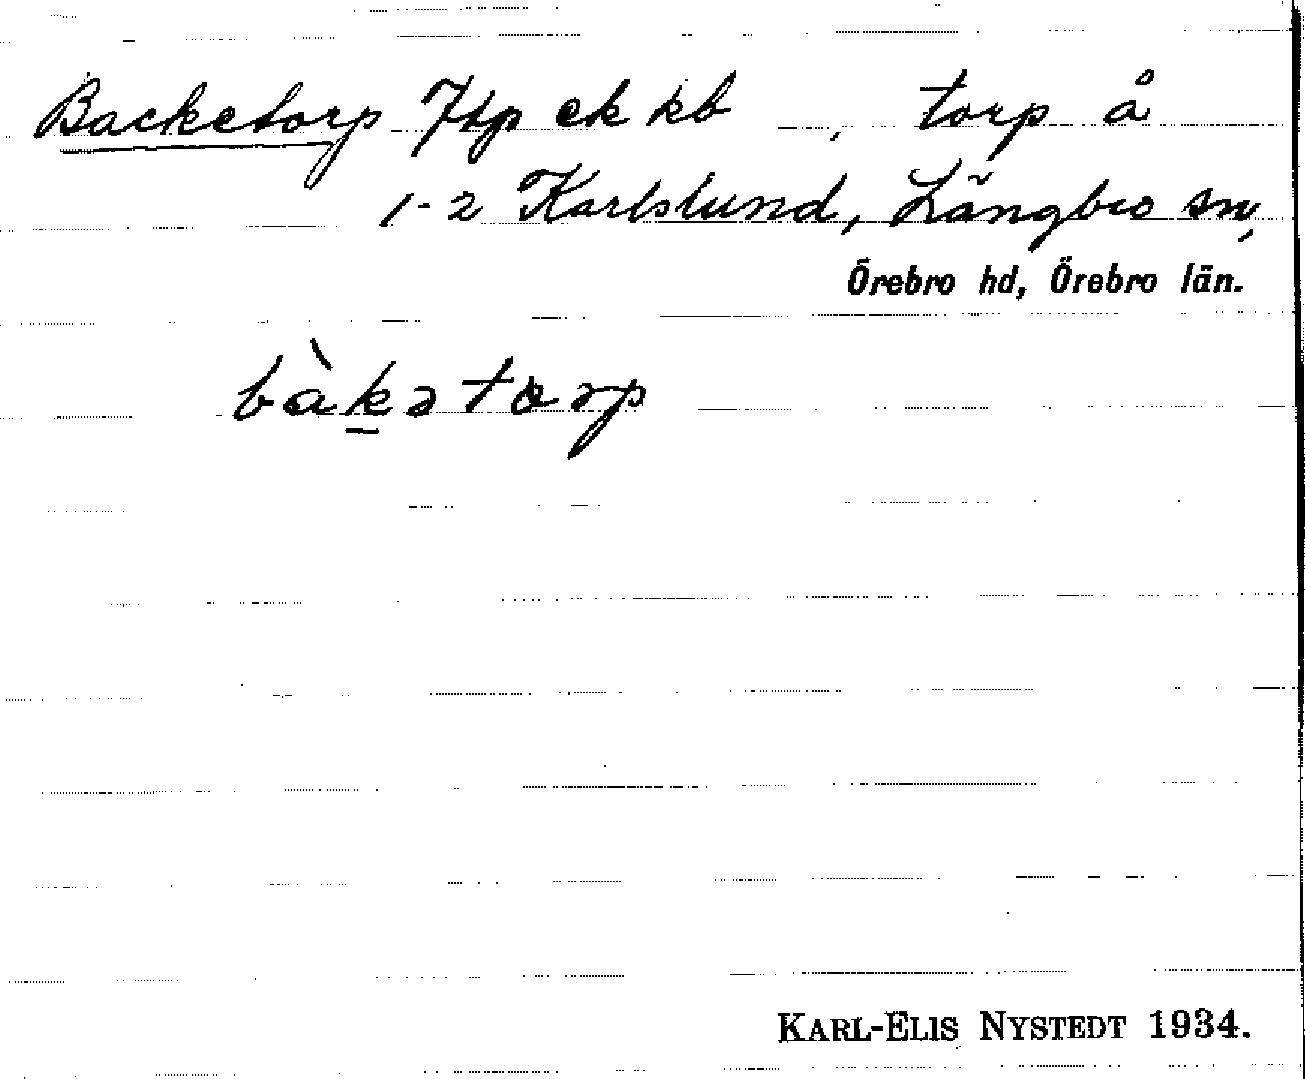 Backetorp Jtp ek kb , torp å
1-2 Karlslund, Längbro sn,
Örebro hd, Örebro län.
bàkətorp
KARL-ELIS NYSTEDT 1934.